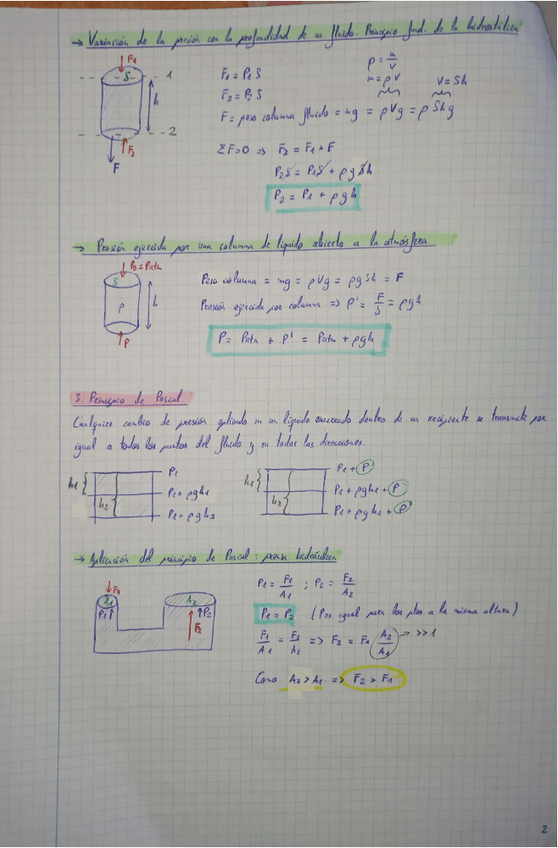 → Variación de la presión con la profundidad de un fluido. Principio fund. de la hidrostática
F1
S
1
h
2
F2
F
F1 = P1 S
F2 = P2 S
ρ = m/V
m = ρV
V = Sh
F = peso columna fluido = mg = ρVg = ρ Shg
ΣF=0 => F2 = F1 + F
P2S = P1S + ρ g S h
P2 = P1 + ρ g h
→ Presión ejercida por una columna de líquido abierto a la atmósfera
P0 = Patm
S
ρ
h
P
Peso columna = mg = ρVg = ρg Sh = F
Presión ejercida por columna => P' = F/S = ρgh
P = Patm + P' = Patm + ρgh
3. Principio de Pascal
Cualquier cambio de presión aplicado en un líquido encerrado dentro de un recipiente se transmite por
igual a todos los puntos del fluido y en todas las direcciones.
h1
h2
P1
P1 + ρgh1
P1 + ρgh2
h1
h2
P1 + P
P1 + ρgh1 + P
P1 + ρgh2 + P
→ Aplicación del principio de Pascal: prensa hidráulica
F1
A1
P1
A2
P2
F2
P1 = F1/A1 ; P2 = F2/A2
P1 = P2 (Pes igual para los ptos a la misma altura)
F1/A1 = F2/A1 => F2 = F1 A2/A1 → >>1
Como A2 > A1 => F2 > F1
2